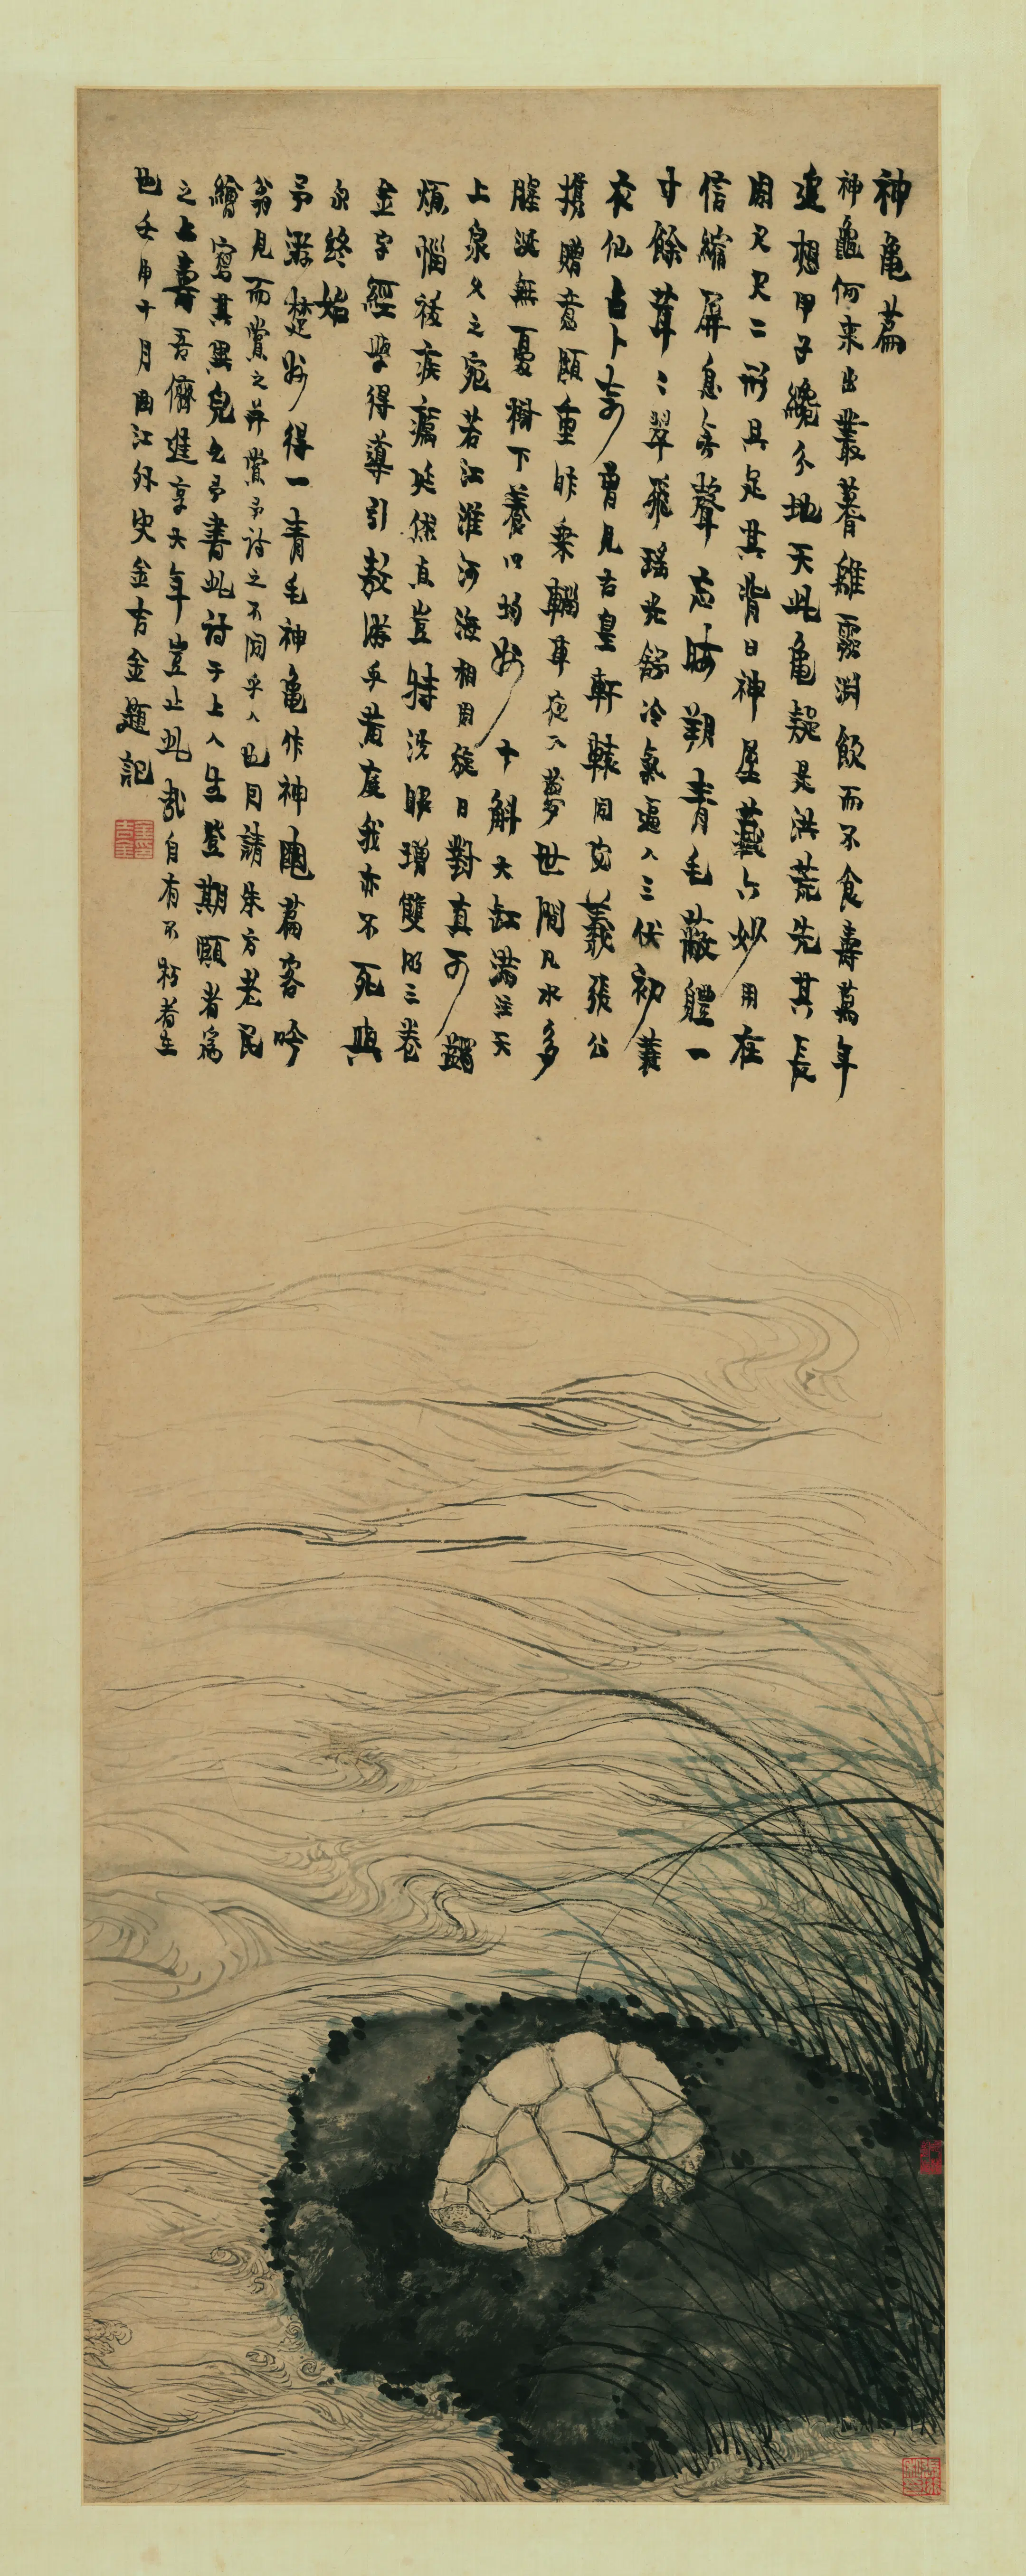 神龜篇
神龜何來出叢蓍雖靈淵飲而不食壽萬年
追想甲子纔分地天此龜疑是洪荒先其長
周尺尺二形具足其背曰神屋藏六妙用在
信縮屏息無聲忘晦朔青毛蔽體一
寸餘茸〻翠飛瑤光錦冷氣逼人三伏初蓑
衣仙占卜奇曾見古皇軒轅同宓羲張公
攜贈意頗重昨乘輜車夜入夢世間凡水多
腥涎無憂樹下養以均州千斛大缸滿注天
上泉久之宛若江淮河海相周旋日對真可蠲
煩惱祛疾癘延僬直豈特洗眼增雙明三卷
金字經學得導引敖游乎黃庭我亦不死與
永終始
予游楚州得一青毛神龜作神龜篇客吟
翁見而賞之并賞予詩之不同乎人也因請朱方老民
繪寫其異皃乞予書此詩于上人生登期頤者為
之上壽吾儕進享大年豈止此哉自有不朽者在
也壬申十月曲江外史金吉金題記
金吉金印